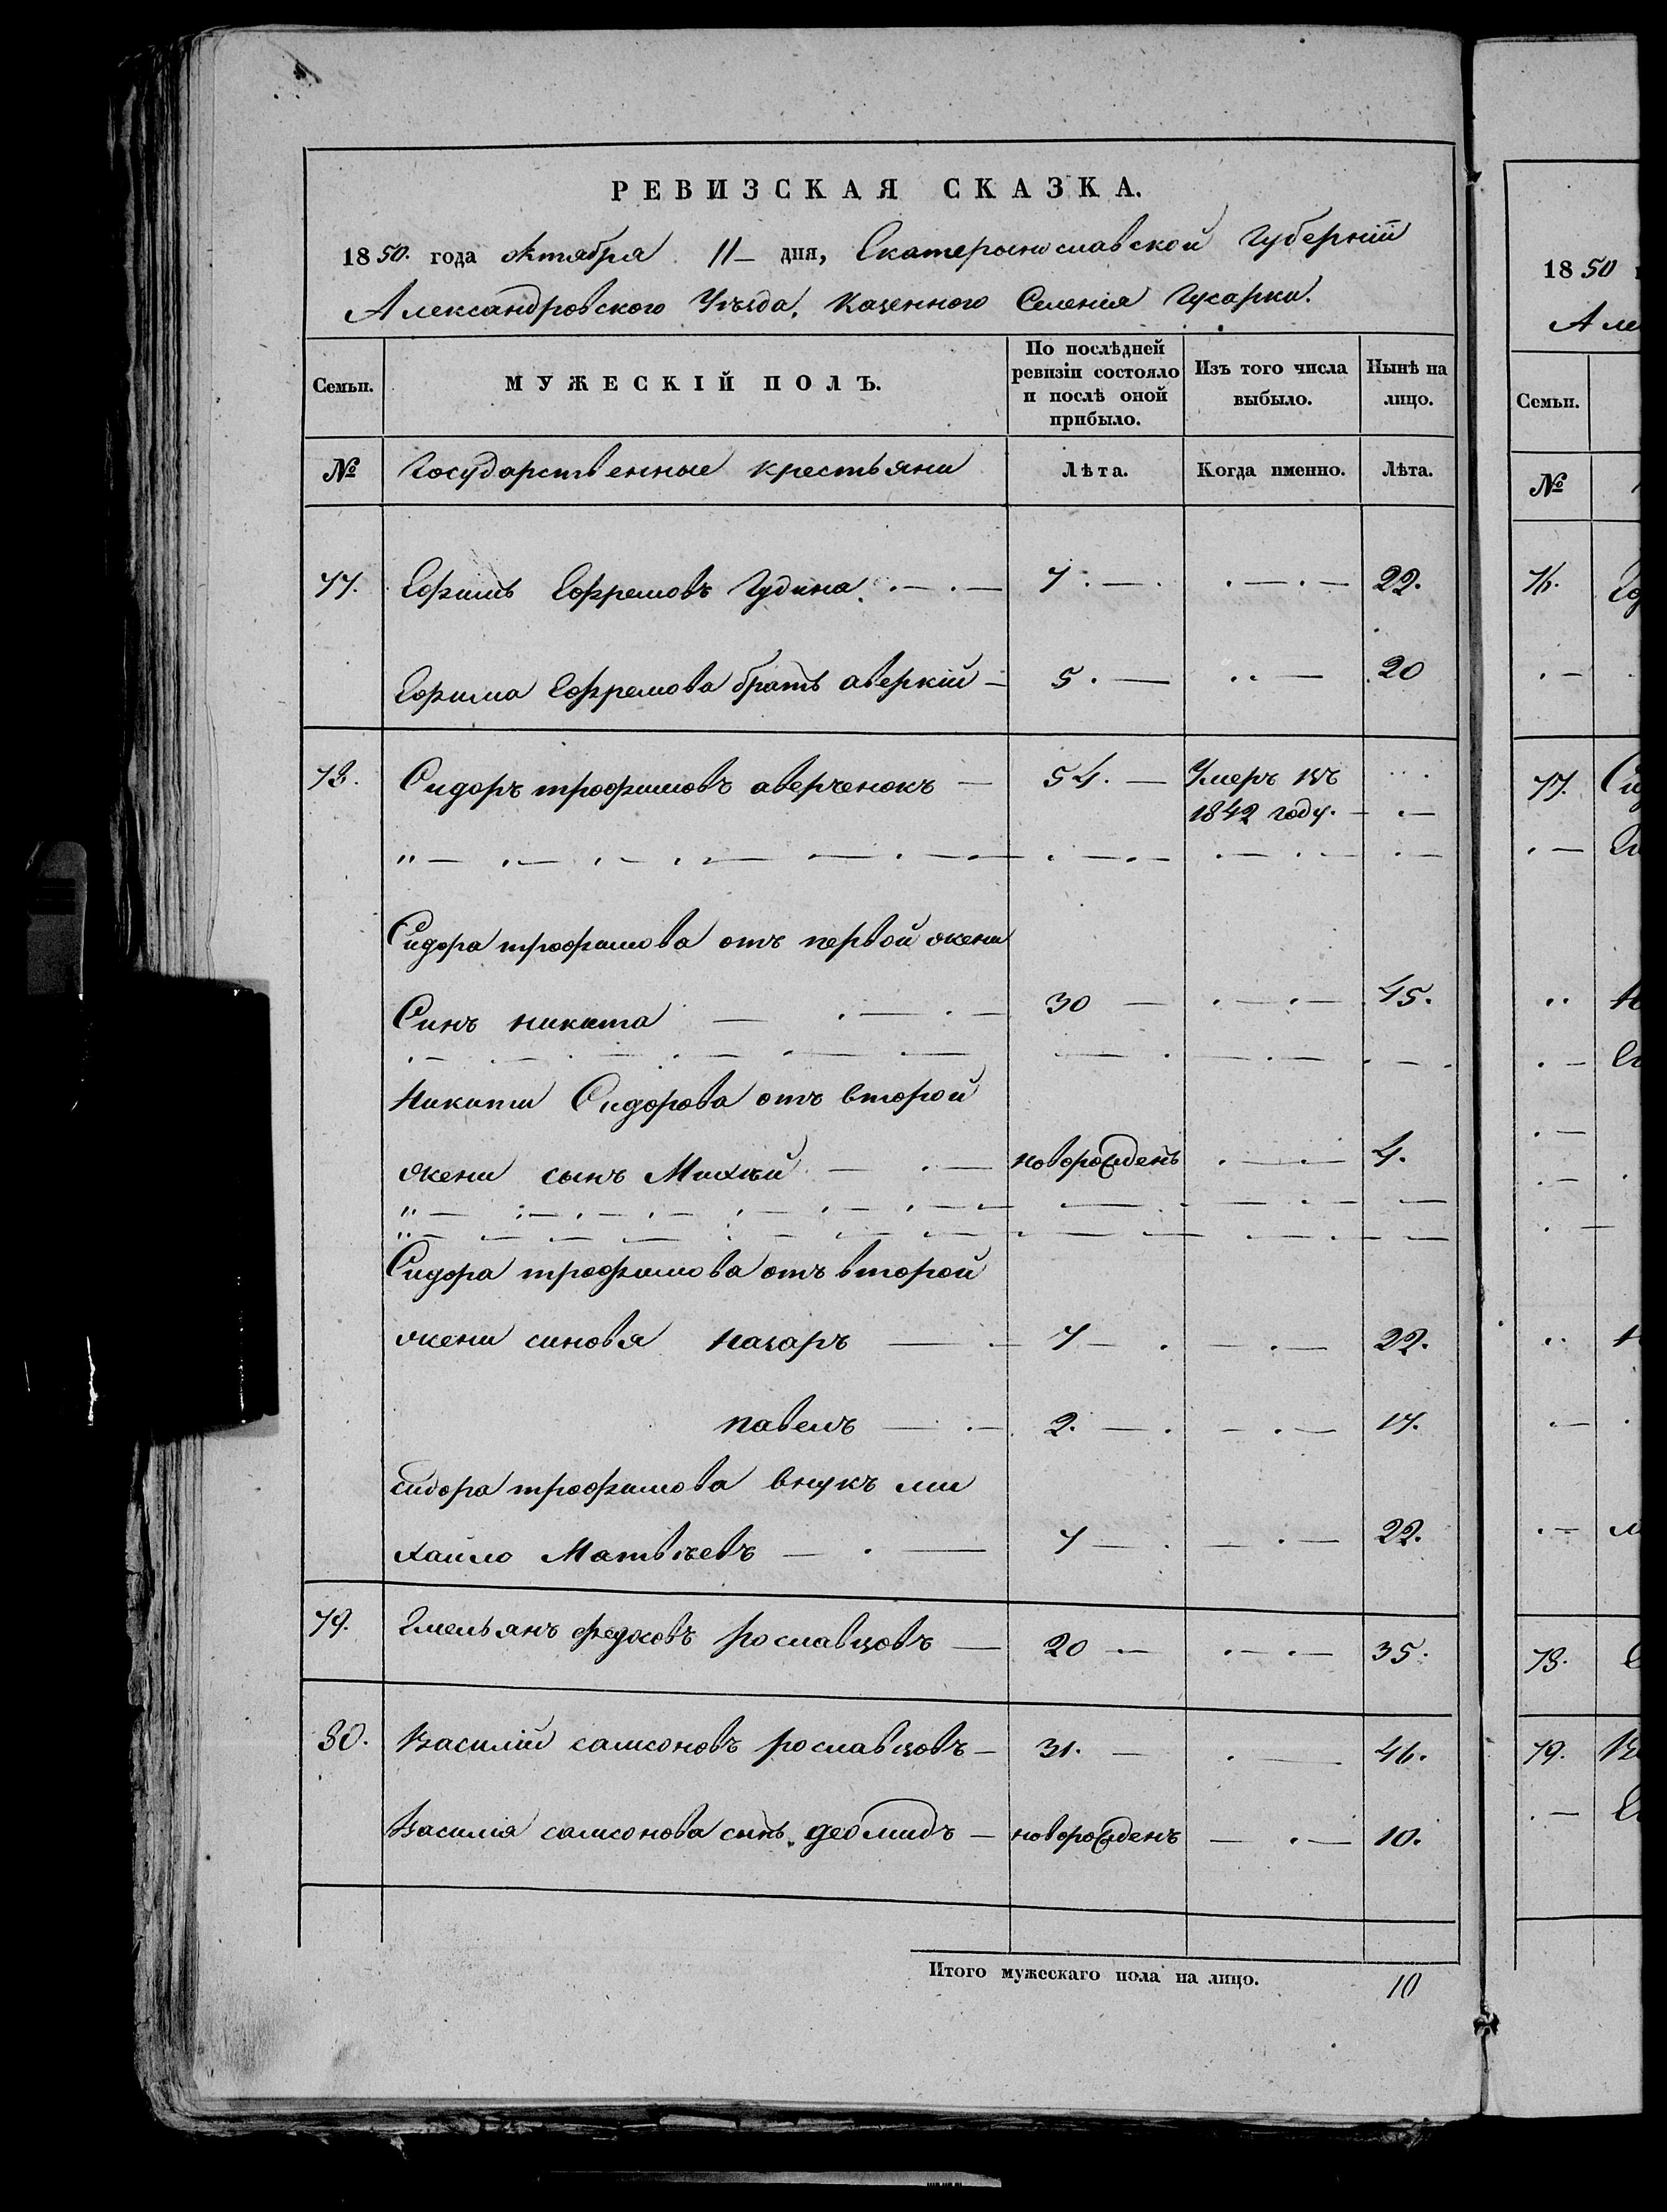 РЕВИЗСКАЯ СКАЗКА.
1850. года октября 11 дня, Екатеринославской Губерніи
Александровского Уѣзда, Казенного Селенія Гусарки.
Семьи. МУЖЕСКІЙ ПОЛЪ. По послѣдней ревизіи состояло и послѣ оной прибыло. Изъ того числа выбыло. Нынѣ на лицо.
№ Государственные крестьяни Лѣта. Когда именно. Лѣта.
77. Ефимъ Ефремовъ Гудина 7. 22.
Ефима Ефремова братъ аверкій 5. 20
78. Сидоръ трофимовъ аверченокъ 54. Умеръ въ
1842 году.
Сидора трофимова отъ первой жени
Синъ никита 30 45.
Никити Сидорова отъ второй
жени сынъ Михѣй новорожденъ 4.
Сидора трофимова отъ второй
жени синовя назаръ 7 22.
павелъ 2. 17.
сидора трофимова внукъ ми
хайло Матвѣевъ 7 22.
79. Емельянъ федосовъ рославцовъ 20 35.
80. Василій самсоновъ рославцовъ 31. 46.
Василія самсонова сынъ, деомидъ новорожденъ 10.
Итого мужескаго пола на лицо. 10
1850
Але
Семьи.
№
76.
77. Си
78.
79.